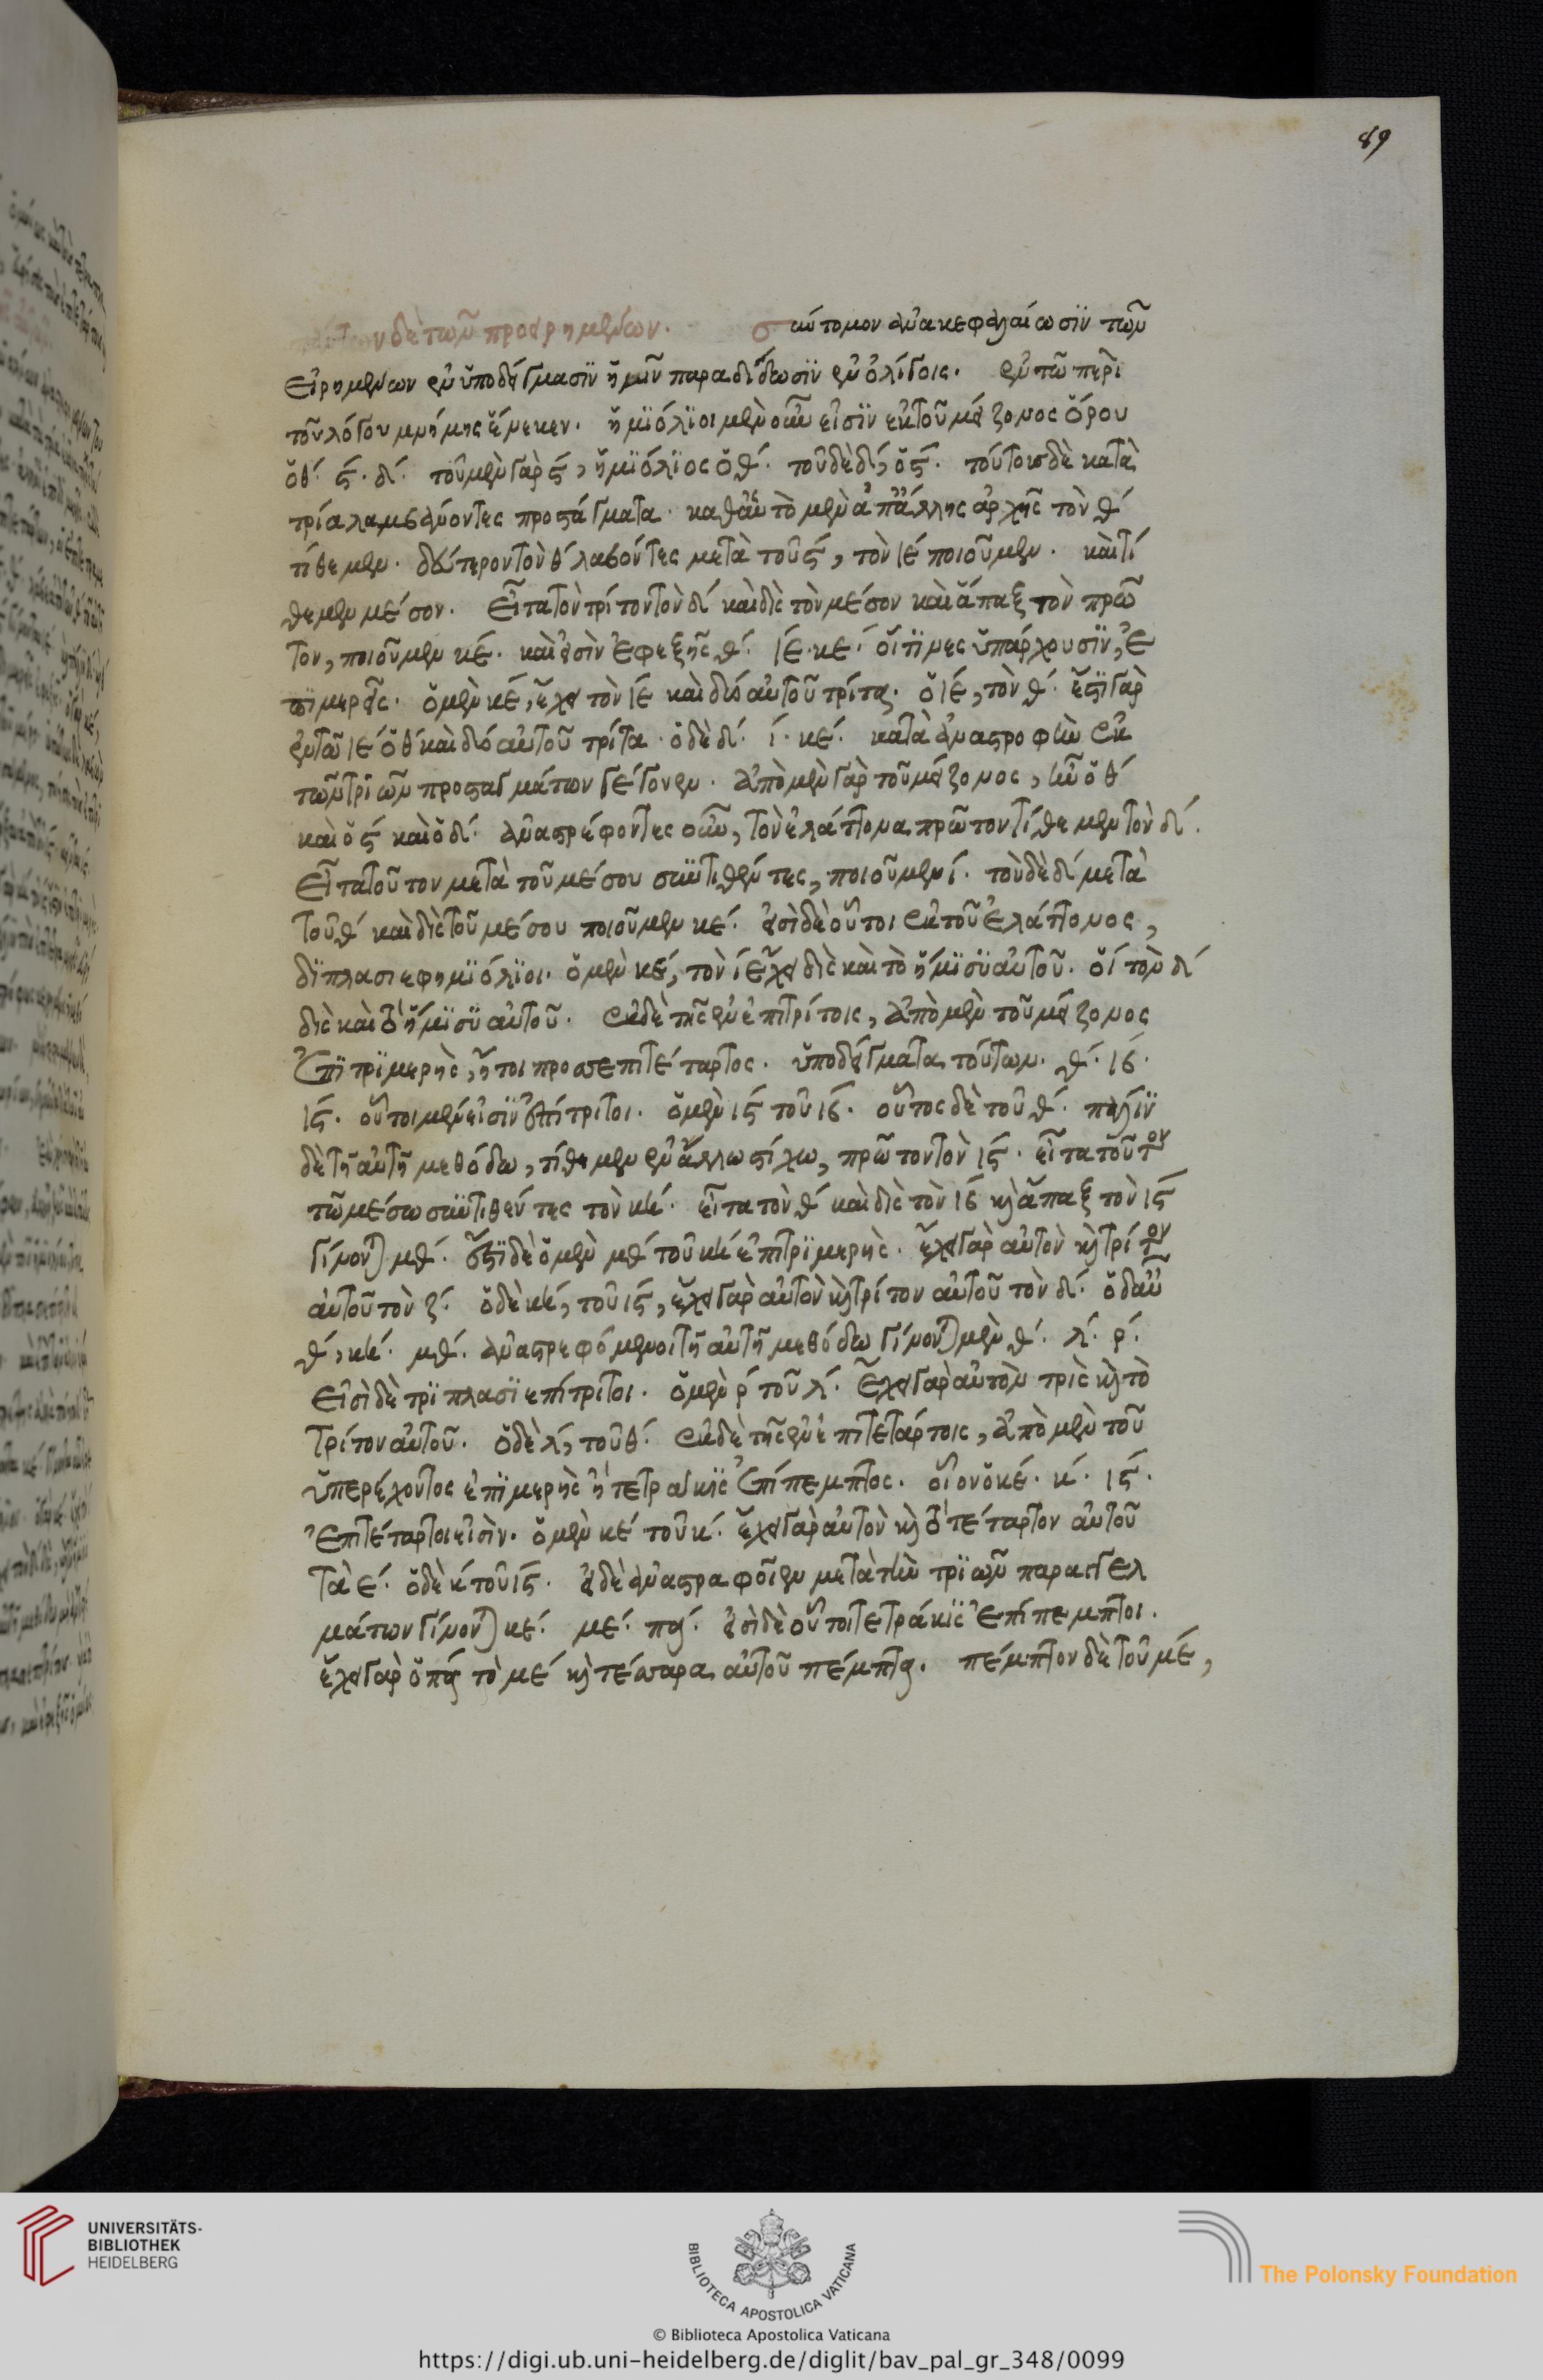 89
πάντων δὲ τῶν προειρημένων. σύντομον ἀνακεφαλαίωσϊν τῶν
εἰρημένων ἐν ὑποδείγμασϊν ἡμῖν παραδίδωσϊν ἐν ὀλίγοις. ἐν τῶ περὶ
τοῦ λόγου μνήμης ἕνεκεν. ἡμϊόλϊοι μὲν οὖν εἰσϊν ἐκ τοῦ μείζονος ὅρου
ὁ θ΄. ϛ΄. δ΄. τοῦ μὲν γὰρ ϛ΄, ἡμϊόλϊος ὁ θ΄. τοῦ δὲ δ΄, ὁ ϛ΄. τούτοις δὲ κατὰ
τρία λαμβάνοντες προστάγματα. καθ' αὑτὸ μὲν ἀπ' ἄλλης ἀρχῆς τὸν θ΄
τίθεμεν. δεύτερον τὸν θ΄ λαβόντες μετὰ τοῦ ϛ΄, τὸν ιε΄ ποιοῦμεν. καὶ τί
θεμεν μέσον. εἶτα τὸν τρίτον τὸν δ΄ καὶ δὶς τὸν μέσον καὶ ἅπαξ τὸν πρῶ
τον, ποιοῦμεν κε΄. καὶ εἰσὶν ἐφεξῆς θ΄. ιε΄. κε΄. οἵτϊνες ὑπάρχουσϊν, ἐ
πϊμερεῖς. ὁ μὲν κε΄, ἔχει τὸν ιε΄ καὶ δύο αὐτοῦ τρίτα. ὁ ιε΄, τὸν θ΄. ἔστϊ γὰρ
ἐν τῶ ιε΄ ὁ θ΄ καὶ δύο αὐτοῦ τρίτα. ὁ δὲ δ΄. ι΄. κε΄. κατὰ ἀναστροφὴν ἐκ
τῶν τριῶν προσταγμάτων γέγονεν. ἀπὸ μὲν γὰρ τοῦ μείζονος, ἦν ὁ θ΄
καὶ ὁ ϛ΄ καὶ ὁ δ΄. ἀναστρέφοντες οὖν, τὸν ἐλάττονα πρῶτον τίθεμεν τὸν δ΄.
εἶτα τοῦτον μετὰ τοῦ μέσου συντιθέντες, ποιοῦμεν ι΄. τὸν δὲ δ΄ μετὰ
τοῦ θ΄ καὶ δὶς τοῦ μέσου ποιοῦμεν κε΄. εἰσὶ δὲ οὗτοι ἐκ τοῦ ἐλάττονος,
δϊπλασιεφημϊόλϊοι. ὁ μὲν κε΄, τὸν ι΄ ἔχει δὶς καὶ τὸ ἥμϊσϋ αὐτοῦ. ὁ ι΄ τὸν δ΄
δὶς καὶ τὸ ἥμϊσϋ αὐτοῦ. ἐκ δὲ τῆς ἐν ἐπιτρίτοις, ἀπὸ μὲν τοῦ μείζονος
ἐπϊτρϊμερὴς, ἤτοι προσεπιτέταρτος. ὑποδείγματα τούτων. θ΄. ιβ΄.
ιϛ΄. οὗτοι μέν εἰσϊν ἐπίτριτοι. ὁ μὲν ιϛ΄ τοῦ ιβ΄. οὗτος δὲ τοῦ θ΄. πάλϊν
δὲ τῆ αὐτῆ μεθόδω, τίθεμεν ἐν ἄλλω στίχω, πρῶτον τὸν ιϛ΄. εἶτα τοῦτον
τῶ μέσω συντιθέντες τὸν κη΄. εἶτα τὸν θ΄ καὶ δὶς τὸν ιβ΄ κὶ ἅπαξ τὸν ιϛ΄
γίνονται μθ΄. ἔστϊ δὲ ὁ μὲν μθ΄ τοῦ κη΄ ἐπϊτρϊμερὴς. ἔχει γὰρ αὐτὸν κὶ τρίτον
αὐτοῦ τὸν ζ΄. ὁ δὲ κη΄, τοῦ ιϛ΄, ἔχει γὰρ αὐτὸν κὶ τρίτον αὐτοῦ τὸν δ΄. ὁ δ' αὖ
θ΄, κη΄. μθ΄. ἀναστρεφόμενοι τῆ αὐτῆ μεθόδω γίνονται μὲν θ΄. λ΄. ρ΄.
εἰσὶ δὲ τρϊπλασϊεπίτριτοι. ὁ μὲν ρ΄ τοῦ λ΄. ἔχει γὰρ αὐτὸν τρὶς κὶ τὸ
τρίτον αὐτοῦ. ὁ δὲ λ΄, τοῦ θ΄. ἐκ δὲ τῆς ἐν ἐπιτετάρτοις, ἀπὸ μὲν τοῦ
ὑπερέχοντος ἐπϊμερὴς ἢ τετράκϊς ἐπίπεμπτος. οἷον ὁ κε΄. κ΄. ιϛ΄.
ἐπιτέταρτοι εἰσὶν. ὁ μὲν κε΄ τοῦ κ΄. ἔχει γὰρ αὐτὸν κὶ τὸ τέταρτον αὐτοῦ
τὰ ε΄. ὁ δὲ κ΄ τοῦ ιϛ΄. εἰ δὲ ἀναστραφοῖεν μετὰ τὴν τρϊῶν παραγγελ
μάτων γίνονται κε΄. με΄. πα΄. εἰσὶ δὲ οὗτοι τετράκϊς ἐπίπεμπτοι.
ἔχει γὰρ ὁ πα΄ τὸ με΄ κὶ τέσσαρα αὐτοῦ πέμπτα. πέμπτον δὲ τοῦ με΄,
UNIVERSITÄTS-
BIBLIOTHEK
HEIDELBERG
BIBLIOTECA APOSTOLICA VATICANA
The Polonsky Foundation
© Biblioteca Apostolica Vaticana
https://digi.ub.uni-heidelberg.de/diglit/bav_pal_gr_348/0099